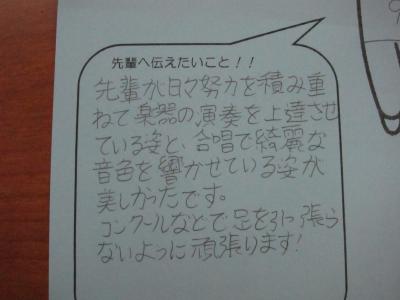 先輩へ伝えたいこと！！
先輩が日々努力を積み重
ねて楽器の演奏を上達させ
ている姿と、合唱で綺麗な
音色を響かせている姿が
美しかったです。
コンクールなどで足を引っ張ら
ないように頑張ります!